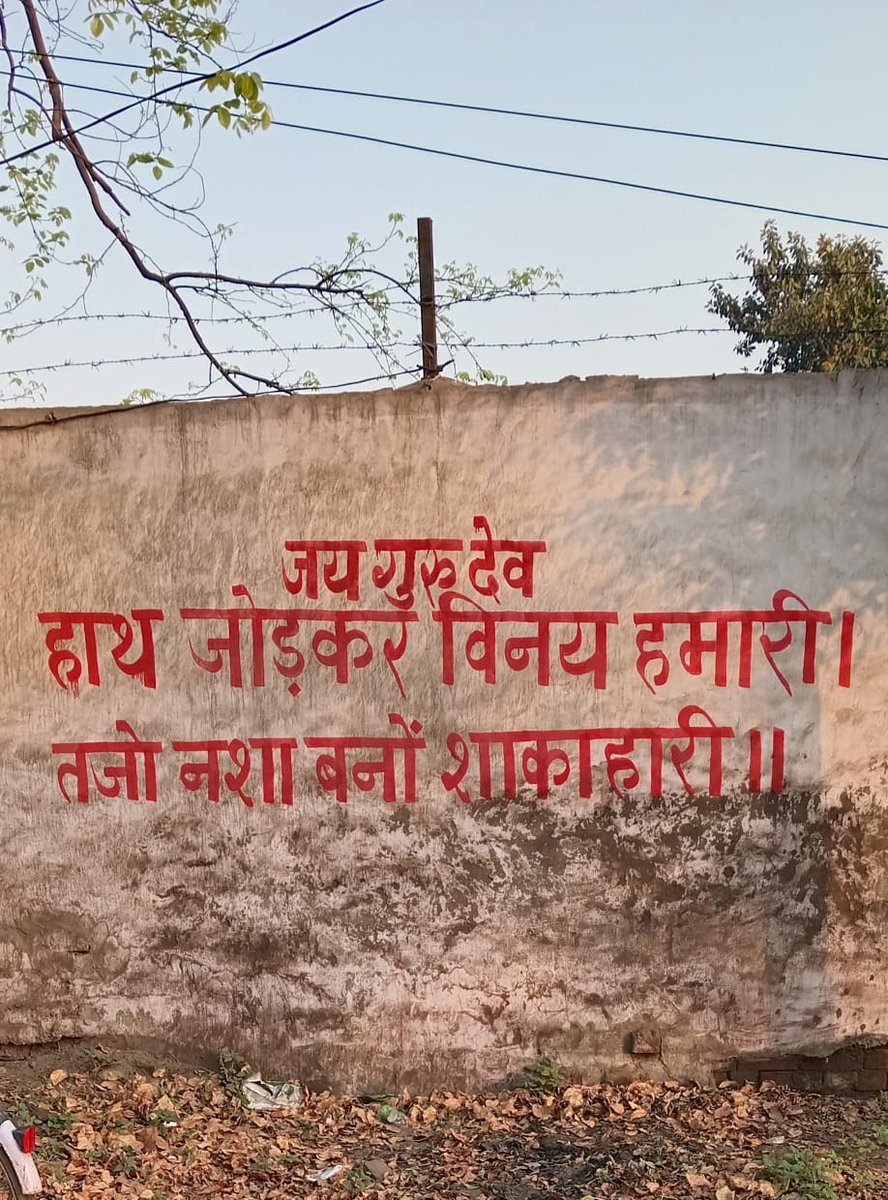 जय गुरु देव
हाथ जोड़कर विनय हमारी।
तजो नशा बनों शाकाहारी॥